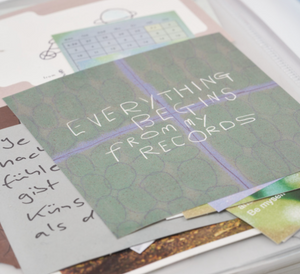 EVERYTHING
BEGINS
FROM MY
RECORDS
fühle
gist
Küns
als d